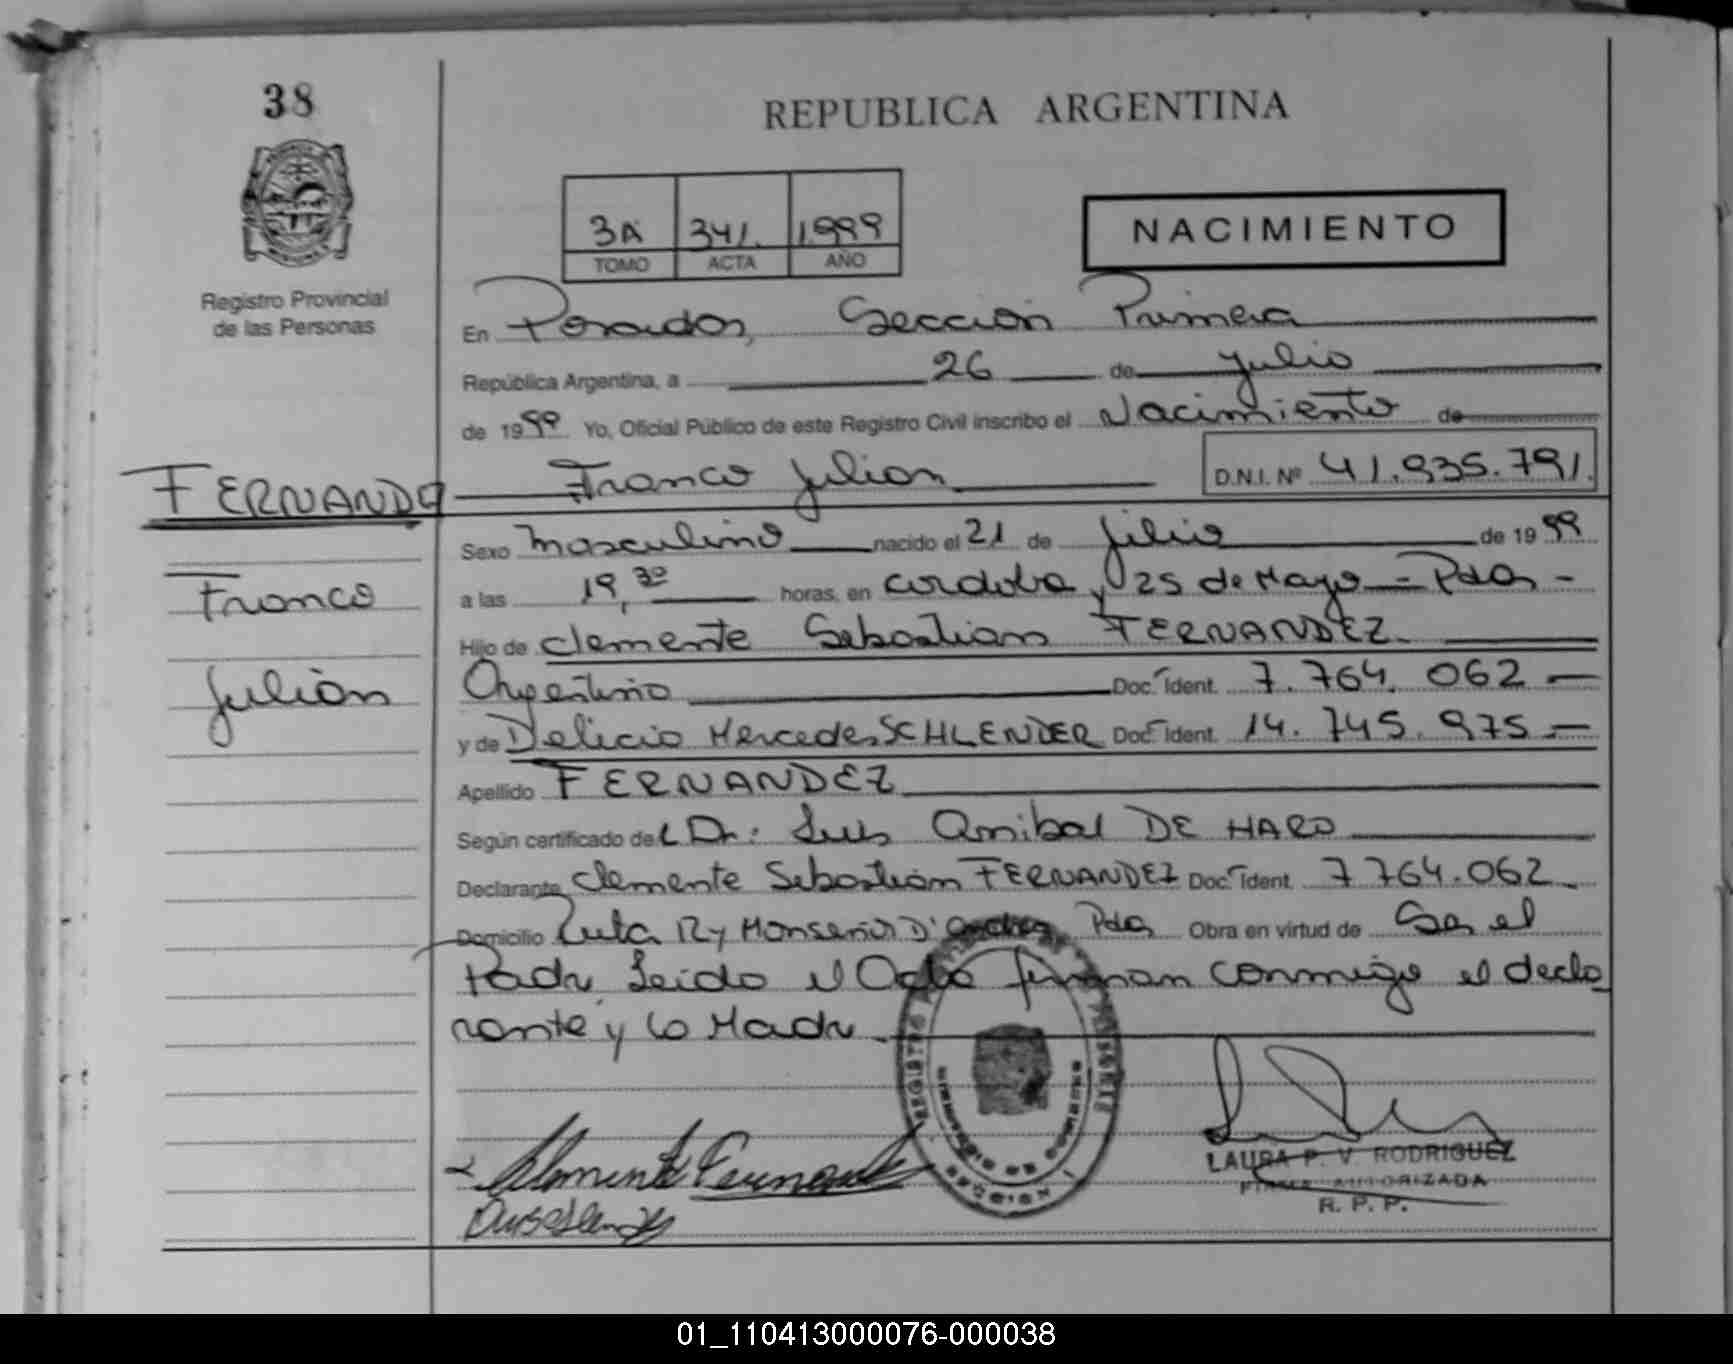 38
REPUBLICA ARGENTINA
3A 341. 1999
TOMO ACTA AÑO
NACIMIENTO
Registro Provincial
de las Personas
En Posadas, Sección Primera
República Argentina, a 26 de Julio
de 1999 Yo, Oficial Público de este Registro Civil inscribo el Nacimiento de
Franco Julian D.N.I. Nº 41.935.791.
FERNANDO
Franco
Julián
Sexo Masculino nacido el 21 de Julio de 1999
a las 19,30 horas, en Cordoba y 25 de Mayo - Pdas -
Hijo de Clemente Sebastian FERNANDEZ
Argentino Doc. Ident. 7.764.062
y de Delicia Mercedes SCHLENDER Doc. Ident. 14.745.975
Apellido FERNANDEZ
Según certificado del Dr: Luis Anibal DE HARO
Declarante Clemente Sebastián FERNANDEZ Doc. Ident. 7.764.062
Domicilio Ruta 12 y Monseñor D' Pdas Obra en virtud de Ser el
Padre Leido el Acta firman conmigo el decla
rante y la Madre
REGISTRO
SECCION 1
LAURA P. V. RODRIGUEZ
FIRMA AUTORIZADA
R. P. P.
01_110413000076-000038